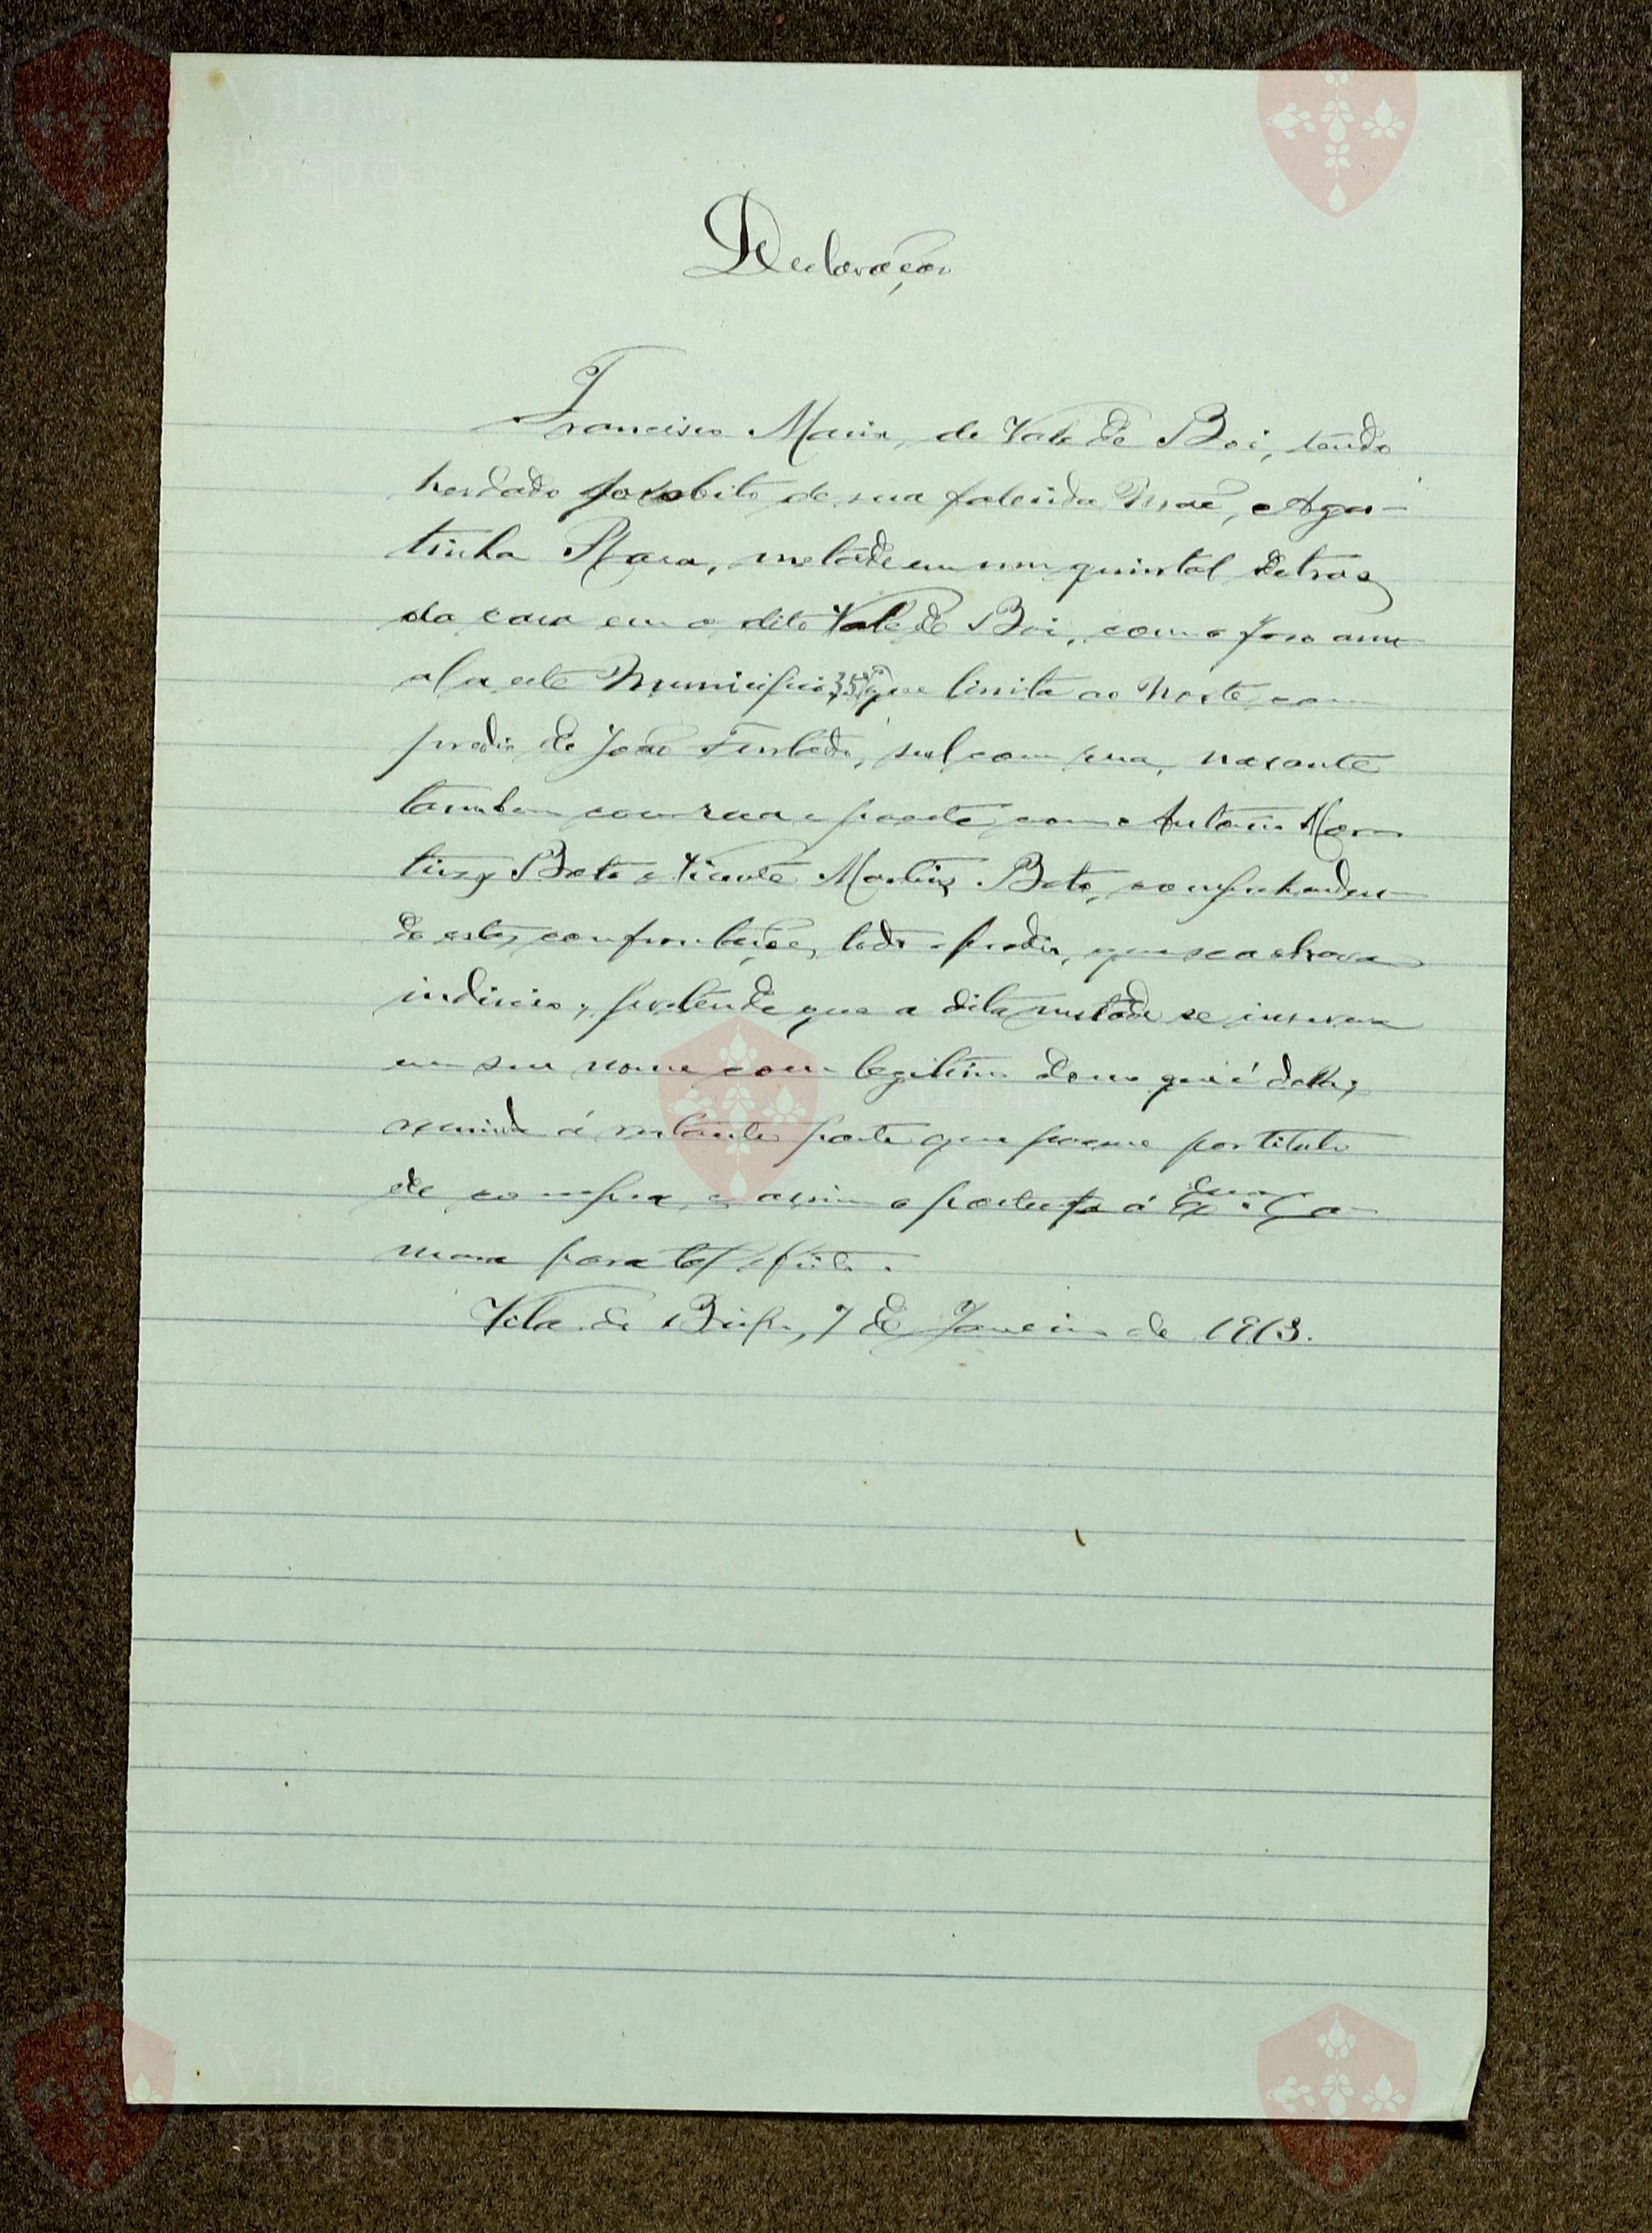 Declaração
Francisco Maria, de Vale de Boi, tendo
herdado por obito de sua falecida Mãe, Agos-
tinha Rosa, metade em um quintal detraz
da casa em o dito Vale de Boi, com o foro anu
al a este Municipio que limita ao Norte com
predio de João Furtado, sul com rua, nascente
tambem com rua e poente com Antonio Mar
tins Beto e Vicente Martins Beto, comprehenden
do estas confrontações todo o predio, que se achava
indiviso; pretende que a dita metade se inscreva
em seu nome como legitimo dono que é della;
reunida á restante parte que possue por titulo
de compra e assim o á Exma Ca
mara para tal efeito.
Vila do Bispo, 7 de Janeiro de 1913.
Vila do
Bispo